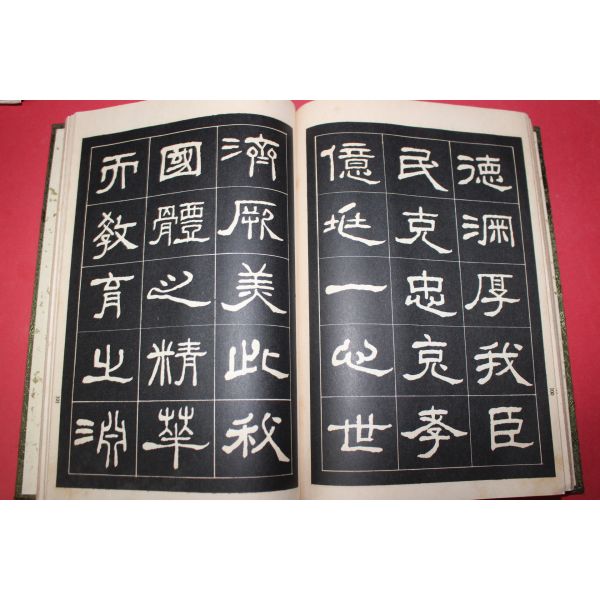 徳深厚我臣
民克忠克孝
億兆一心世
濟厥美此我
國體之精華
而教育之淵